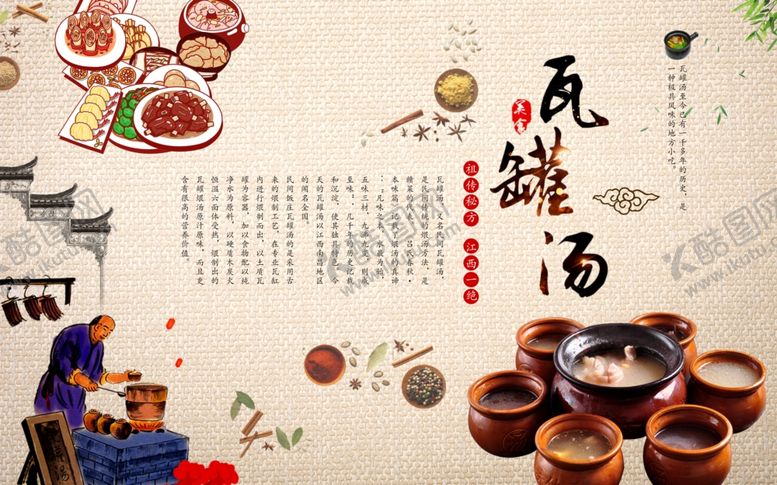 瓦罐汤至今已有一千多年的历史,是
一种极具风味的地方小吃。
瓦罐汤
美食
祖传秘方
江西一绝
瓦罐汤,又名民间瓦罐汤,
是民间传统的煨汤方法,是
赣菜的代表。《吕氏春秋·
本味篇》记载了煨汤的真谛
:"凡味之本,水最为始,
五味三材,九沸九变,则成
至味。"几千年的历史记载
和沉淀,使其独具特色。
天的瓦罐汤以江西南昌地区
的闻名全国。
民间饭庄瓦罐汤的是采用古
来的煨制工艺,在专业瓦缸
内进行煨制而出,以土质瓦
罐为容器,加以食物配以纯
净水为原料,以硬质木炭火
恒温六面体受热,煨制出的
瓦罐煨汤原汁原味,而且更
含有很高的营养价值。
酷图网
酷图网
酷图网